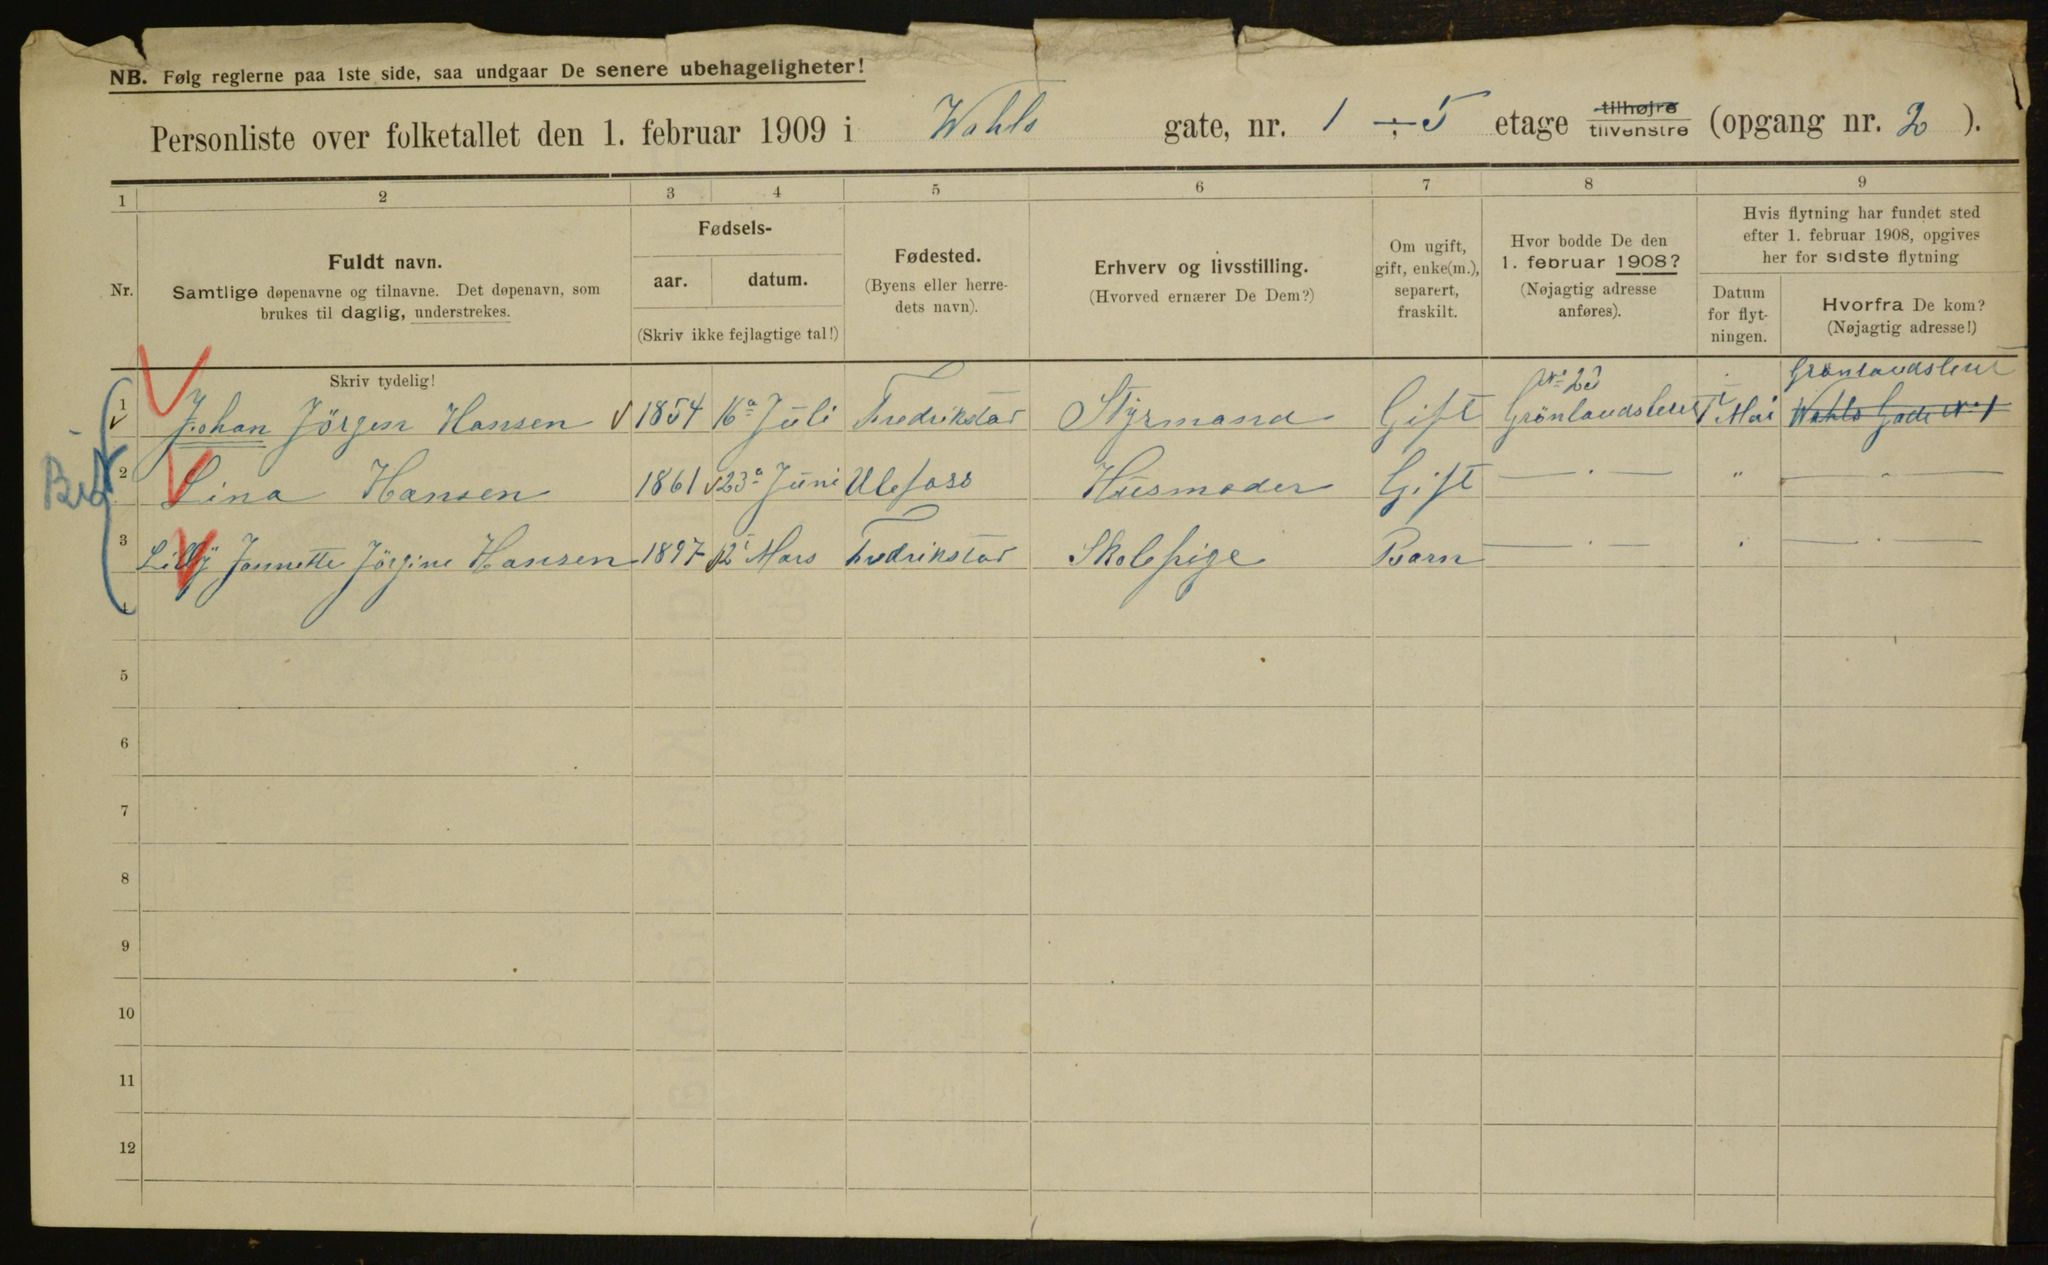 NB. Følg reglerne paa 1ste side, saa undgaar De senere ubehageligheter!
Personliste over folketallet den 1. februar 1909 i Wahls gate, nr. 1 ÷ 5 etage tilhøjre tilvenstre (opgang nr. 2 ).
1 2 3 4 5 6 7 8 9
Nr.
Fuldt navn.
Samtlige døpenavne og tilnavne. Det døpenavn, som
brukes til daglig, understrekes.
Skriv tydelig!
Fødsels-
aar. datum.
(Skriv ikke fejlagtige tal!)
Fødested.
(Byens eller herre-
dets navn).
Erhverv og livsstilling.
(Hvorved ernærer De Dem?)
Om ugift,
gift, enke(m.),
separert,
fraskilt.
Hvor bodde De den
1. februar 1908?
(Nøjagtig adresse
anføres).
Hvis flytning har fundet sted
efter 1. februar 1908, opgives
her for sidste flytning
Datum
for flyt-
ningen.
Hvorfra De kom?
(Nøjagtig adresse!)
No 23 Grönlandsleret
1 Johan Jörgen Hansen 1854 16 Juli Fredrikstad Styrmand Gift Grönlandsleret 1 Mai Wahls Gade No 1
2 Lina Hansen 1861 23 Juni Ulefoss Husmoder Gift — . — " — " —
3 Lilly Jannette Jörgine Hansen 1897 12 Mars Fredrikstad Skolepige Barn — . — " — . —
4
5
6
7
8
9
10
11
12